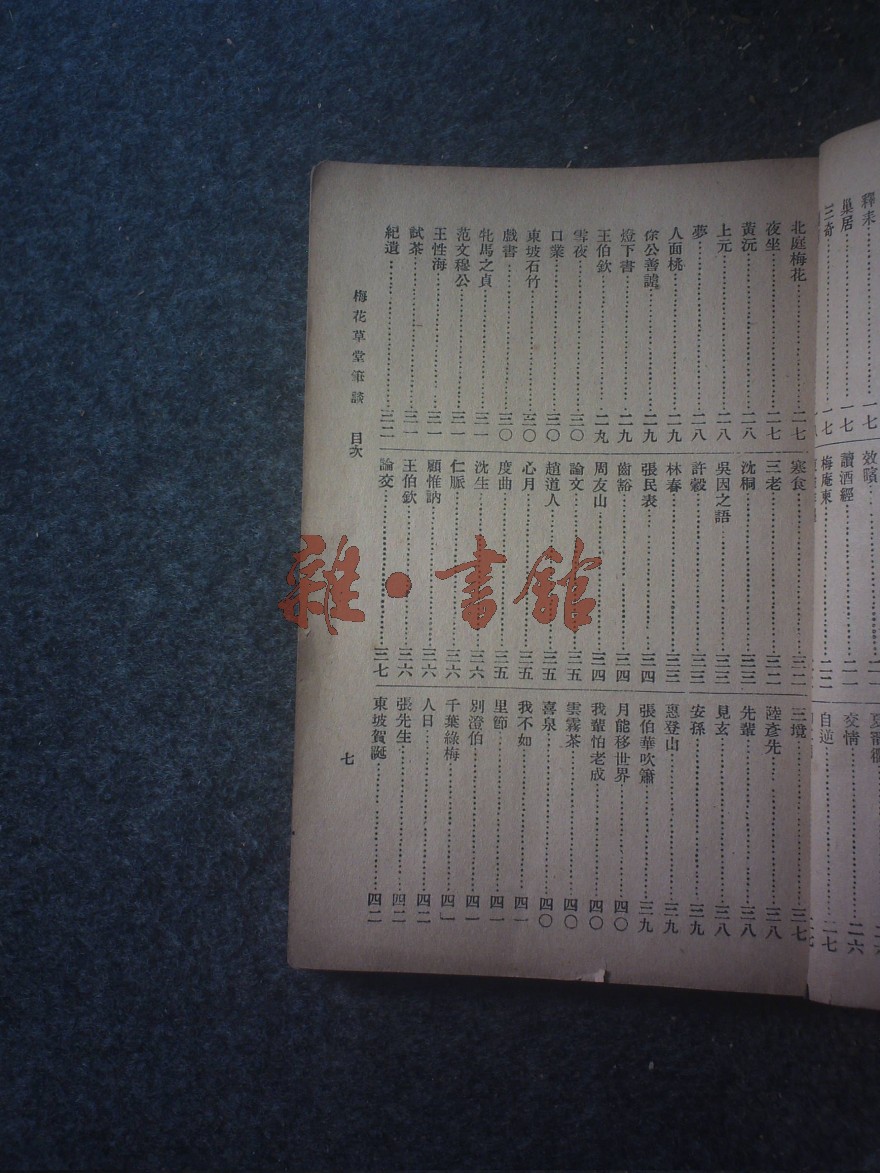 巢居……一七
三奇……一七
效嚬……二一
讀酒經……二一
梅庵東……二二
交情……二六
北庭梅花……二七
夜坐……二七
黃沅……二八
上元……二八
夢……二八
人面桃……二九
徐公善謔……二九
燈下書……二九
王伯欽……二九
雪夜……三〇
口業……三〇
東坡石竹……三〇
戲書……三〇
牝馬之貞……三一
范文穆公……三一
王性海……三一
試茶……三一
紀遺……三二
寒食……三二
三老……三二
沈桐……三三
吳因之語……三三
許穀……三三
林春……三三
張民表……三四
齒豁……三四
周友山……三四
論文……三五
趙道人……三五
心月……三五
度曲……三五
沈生……三六
仁脈……三六
顧惟訥……三六
王伯欽……三六
論交……三七
三境……三七
陸彥先……三八
先輩……三八
見玄……三八
安孫……三九
惠登山……三九
張伯華吹簫……三九
月能移世界……四〇
我輩怕老成……四〇
雲霧茶……四〇
喜泉……四〇
我不如……四一
里節……四一
別澄伯……四一
千葉綠梅……四一
人日……四二
張先生……四二
東坡賀誕……四二
梅花草堂筆談 目次
七
雜·書館